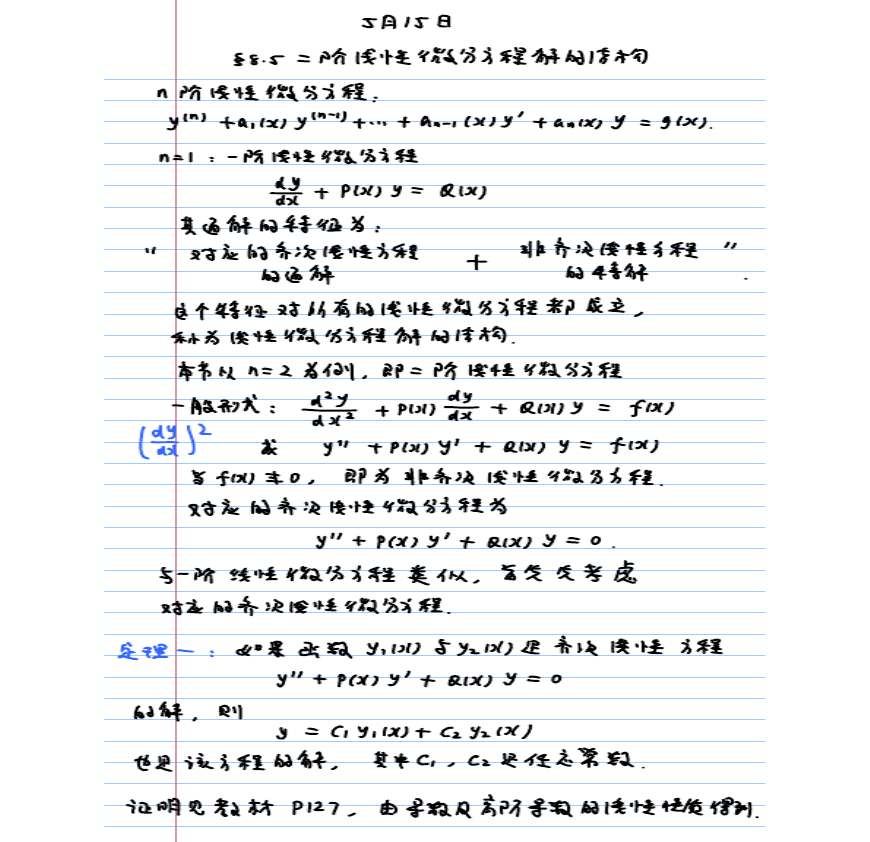 5月15日
§8.5 二阶线性微分方程解的结构
n 阶线性微分方程.
y⁽ⁿ⁾ + a₁(x) y⁽ⁿ⁻¹⁾ + … + aₙ₋₁(x) y′ + aₙ(x) y = g(x).
n=1: 一阶线性微分方程
dy/dx + P(x) y = Q(x)
其通解的特征为:
“ 对应的齐次线性方程的通解 + 非齐次线性方程的特解 ” .
这个特征对所有的线性微分方程都成立,
称为线性微分方程解的结构.
本节以 n=2 为例, 即二阶线性微分方程
一般形式: d²y/dx² + P(x) dy/dx + Q(x) y = f(x)
(dy/dx)² 或 y″ + P(x) y′ + Q(x) y = f(x)
当 f(x) ≢ 0, 即为非齐次线性微分方程.
对应的齐次线性微分方程为
y″ + P(x) y′ + Q(x) y = 0.
与一阶线性微分方程类似, 首先先考虑
对应的齐次线性微分方程.
定理一: 如果函数 y₁(x) 与 y₂(x) 是齐次线性方程
y″ + P(x) y′ + Q(x) y = 0
的解, 则
y = C₁ y₁(x) + C₂ y₂(x)
也是该方程的解, 其中 C₁, C₂ 是任意常数.
证明见教材 P127, 由导数及高阶导数的线性性质得到.